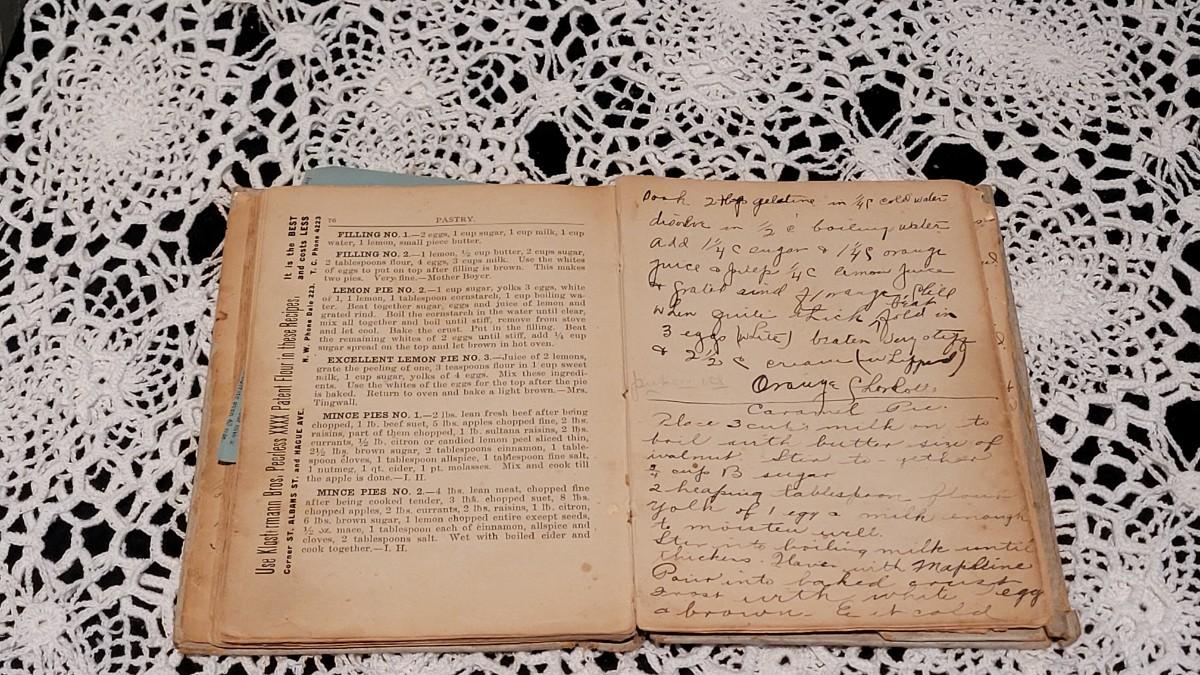 Use Klostermann Bros. Peerless XXXX Patent Flour in these Recipes.
It is the BEST
and costs LESS
Corner ST. ALBANS ST. and HAGUE AVE.
N. W. Phone Dale 223.
T. C. Phone 4223
76
PASTRY.
FILLING NO. 1.—2 eggs, 1 cup sugar, 1 cup milk, 1 cup
water, 1 lemon, small piece butter.
FILLING NO. 2.—1 lemon, ½ cup butter, 2 cups sugar,
2 tablespoons flour, 4 eggs, 3 cups milk. Use the whites
of eggs to put on top after filling is brown. This makes
two pies. Very fine.—Mother Boyer.
LEMON PIE NO. 2.—1 cup sugar, yolks 3 eggs, white
of 1, 1 lemon, 1 tablespoon cornstarch, 1 cup boiling wa-
ter. Beat together sugar, eggs and juice of lemon and
grated rind. Boil the cornstarch in the water until clear,
mix all together and boil until stiff, remove from stove
and let cool. Bake the crust. Put in the filling. Beat
the remaining whites of 2 eggs until stiff, add ¼ cup
sugar spread on the top and let brown in hot oven.
EXCELLENT LEMON PIE NO. 3.—Juice of 2 lemons,
grate the peeling of one, 3 teaspoons flour in 1 cup sweet
milk, 1 cup sugar, yolks of 4 eggs. Mix these ingredi-
ents. Use the whites of the eggs for the top after the pie
is baked. Return to oven and bake a light brown.—Mrs.
Tingwall.
MINCE PIES NO. 1.—2 lbs. lean fresh beef after being
chopped, 1 lb. beef suet, 5 lbs. apples chopped fine, 2 lbs.
raisins, part of them chopped, 1 lb. sultana raisins, 2 lbs.
currants, ½ lb. citron or candied lemon peel sliced thin,
2½ lbs. brown sugar, 2 tablespoons cinnamon, 1 table-
spoon cloves, 1 tablespoon allspice, 1 tablespoon fine salt,
1 nutmeg, 1 qt. cider, 1 pt. molasses. Mix and cook till
the apple is done.—I. H.
MINCE PIES NO. 2.—4 lbs. lean meat, chopped fine
after being cooked tender, 3 lbs. chopped suet, 8 lbs.
chopped apples, 2 lbs. currants, 2 lbs. raisins, 1 lb. citron,
6 lbs. brown sugar, 1 lemon chopped entire except seeds,
½ oz. mace, 1 tablespoon each of cinnamon, allspice and
cloves, 2 tablespoons salt. Wet with boiled cider and
cook together.—I. H.
Soak 2 tbsp gelatine in ¼ c cold water
disolve in ½ c boiling water
add 1¼ c sugar & 1¼ c orange
juice & pulp ¼ c lemon juice
& grated rind of orange Chill
When quite thick Beat fold in
3 eggs (white) beaten very stiff
& 2½ c cream (whipped)
Orange Charlotte
Caramel Pie.
Place 3 cups milk on to
boil with butter size of
walnut Stir together
¾ cup B sugar
2 heaping tablespoons flour
Yolk of 1 egg & milk enough
to moisten well.
Stir into boiling milk until
thickens. Flavor with Mapleine
Pour into baked crust
Frost with white egg
& brown. Eat cold